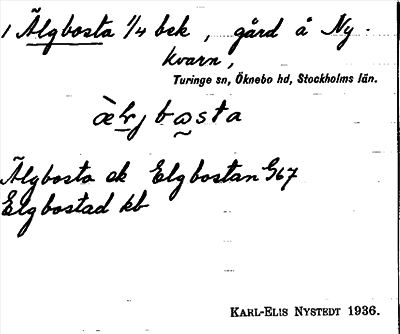 1 Älgbosta 1/4 bsk, gård å Ny-
kvarn,
Turinge sn, Öknebo hd, Stockholms län.
Älgbosta ek Elgbostan G67
Elgbostad kb
KARL-ELIS NYSTEDT 1936.